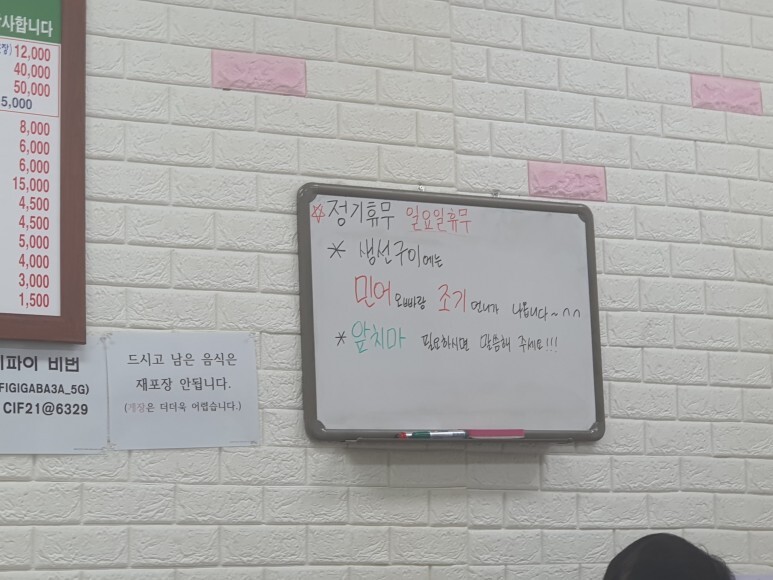 사합니다
12,000
40,000
50,000
5,000
8,000
6,000
6,000
15,000
4,500
4,500
5,000
4,000
3,000
1,500
파이 비번
FIGIGABA3A_5G)
CIF21@6329
드시고 남은 음식은
재포장 안됩니다.
(게장은 더더욱 어렵습니다.)
☆정기휴무 일요일휴무
* 생선구이에는
민어오빠랑 조기언니가 나옵니다~^^
*앞치마 필요하시면 말씀해 주세요!!!